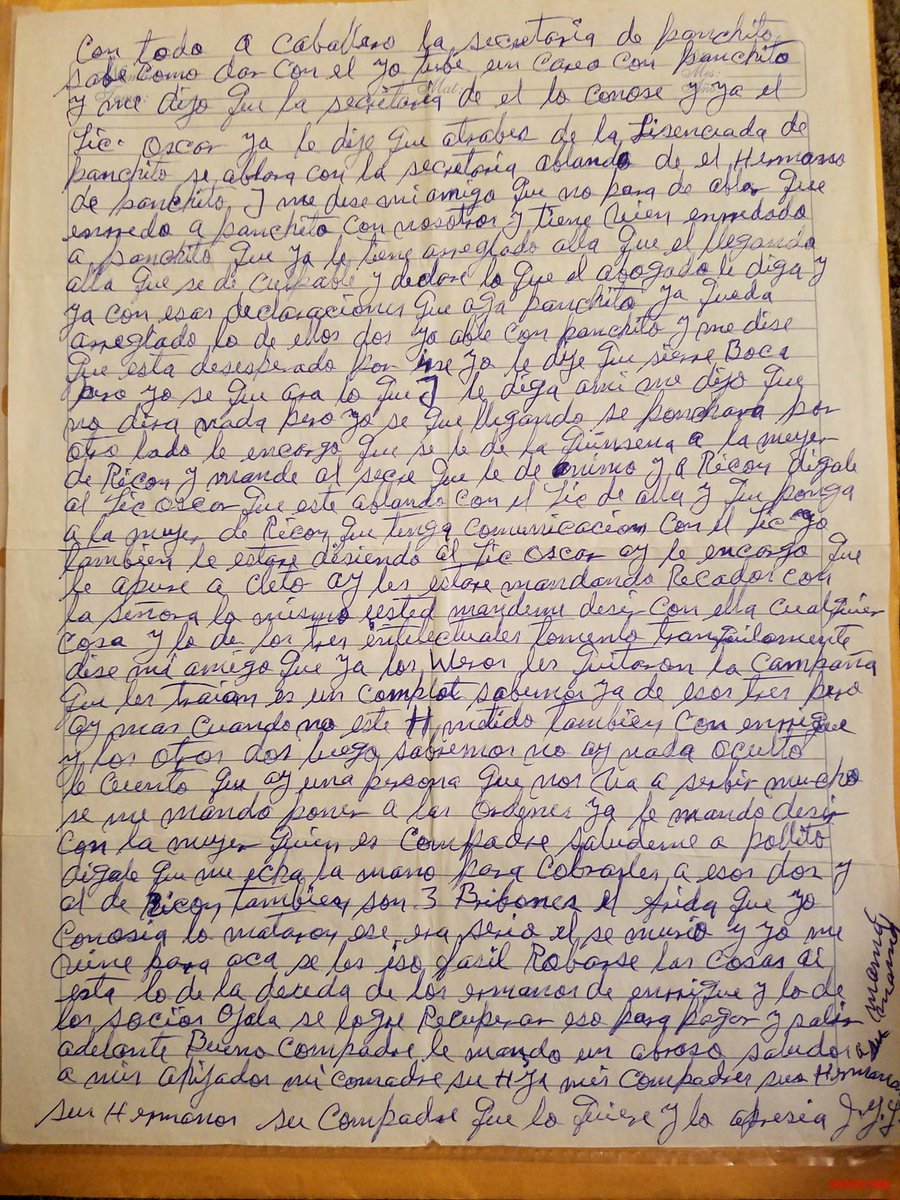 Con todo a caballero la secretaria de panchito
sabe como dar con el yo tube un careo con panchito
y me dijo que la secretaria de el lo conose y ya el
Lic. Oscar ya le dije que atrabes de la Lisenciada de
panchito se ablara con la secretaria ablando de el Hermano
de panchito, J me dise mi amigo que no para de ablar que
enrredo a panchito con nosotros y tiene vien enrredado
a panchito que ya le tiene arreglado alla que el llegando
alla que se de culpable y declare lo que el abogado le diga y
ya con esas declaraciones que aga panchito ya queda
arreglado lo de ellos dos yo able con panchito y me dise
que esta desesperado por irse yo le dije que sierre Boca
pero yo se que ara lo que J le diga a mi me dijo que
no dira nada pero yo se que llegando se ponchara por
otro lado le encargo que se le de la quinsena a la mujer
de Ricon y mande al secre que le de animo y a Ricon digale
al Lic Oscar que este ablando con el Lic de alla y que ponga
a la mujer de Ricon que tenga comunicacion con el Lic yo
tambien le estare disiendo al Lic Oscar ay le encargo que
le apure a cleto ay les estare mandando Recados con
la señora lo mismo usted mandeme desir con ella cualquier
cosa y lo de los tres intelectuales tomento tranquilamente
dise mi amigo que ya los Weros les quitaron la campaña
que les traian es un complot sabemos ya de esos tres pero
ay mas cuando no este H. metido tambien con enrrique
y los otros dos luego sabremos no ay nada oculto
le cuento que ay una persona que nos va a serbir mucho
se me mando poner a las ordenes ya le mando desir
con la mujer quien es compadre saludeme a pollito
digale que me echa la mano para cobrarles a esos dos y
al de Ricon tambien son 3 Bribones el Arida que yo
conosia lo mataron ese era serio el se murio y yo me
vine para aca se les iso fasil Robarse las cosas ai
esta lo de la deuda de los ermanos de enrrique y lo de
los socios Ojala se logre Recuperar eso para pagar y salir
adelante Bueno Compadre le mando un abraso saludos a su mamá
a mis aijados mi comadre su Hija mis compadres sus Hermanas
sus Hermanos su Compadre que lo quiere y lo apresia J.G.L.